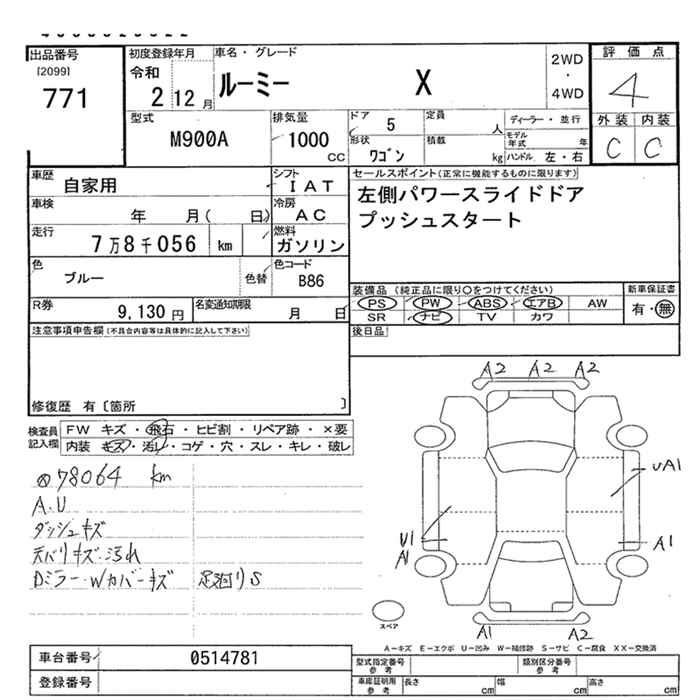 出品番号 初度登録年月 車名・グレード 2WD・4WD 評価点
[2099] 令和
771 2 12月 ルーミー X 4
型式 排気量 ドア 5 定員 人 ディーラー・並行 外装 内装
M900A 1000 cc 形状 ワゴン 積載 kg モデル年式 年 ハンドル 左・右 C C
車歴 自家用 シフト IAT セールスポイント(正常に機能するものに限ります)
車検 年 月( 日) 冷房 AC 左側パワースライドドア
走行 7万8千056 km 燃料 ガソリン プッシュスタート
色 ブルー 色替 色コード B86
装備品(純正品に限り○をつけてください) 新車保証書
R券 9,130円 名変通知期限 月 日 PS PW ABS エアB AW 有・無
SR ナビ TV カワ
注意事項申告欄(不具合内容等は具体的に記入して下さい) 後日品
修復歴 有〔箇所 〕
検査員記入欄 FW キズ・飛石・ヒビ割・リペア跡・×要
内装 キズ・汚レ・コゲ・穴・スレ・キレ・破レ
78064 km
A.U
ダッシュキズ
天バリキズ・汚れ
Dミラー・Wカバーキズ 足廻りS
A2 A2 A2
UA1
U1
A1
A1
A1 A2
スペア
A-キズ E-エクボ U-凹み W-補修跡 S-サビ C-腐食 XX-交換済
車台番号 0514781 型式指定番号 参考 類別区分番号 参考
登録番号 車庫証明用 参考 長さ cm 幅 cm 高さ cm